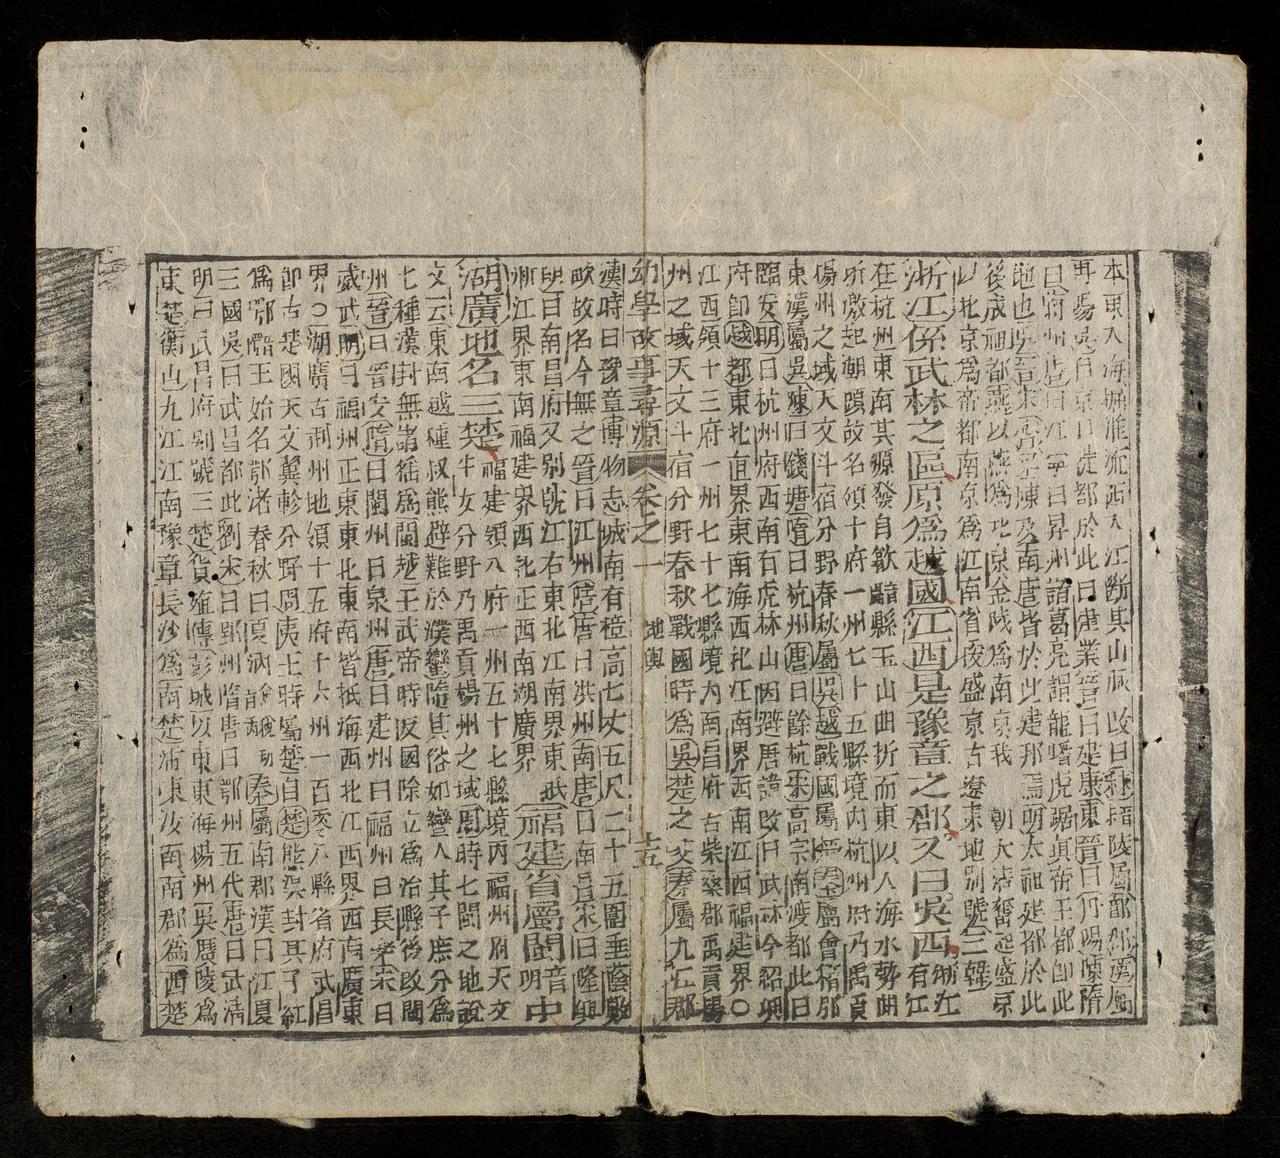 本東入海城淮流西入江斷其山脉改曰秣陵屬鄣郡漢屬
丹陽吳自京口徙都於此曰建業晉曰建康東晉曰丹陽陳隋
曰蔣州唐曰江寧曰昇州諸葛亮謂龍蟠虎踞真帝王都卽此
地也吳晉宋齊梁陳及南唐皆於此建都焉明太祖建都於此
後成祖都燕以燕爲北京金陵爲南京我 朝大清奮起盛京
以北京爲帝都南京爲江南省後盛京古遼東地別號三韓
浙江係武林之區原爲越國江西是豫章之郡又曰吳西浙江有江
在杭州東南其源發自歙黟縣玉山曲折而東以入海水勢曲
折激起朝躋故名領十府一州七十五縣境內杭州府乃禹貢
楊州之域天文斗宿分野春秋屬吳越戰國屬楚秦屬會稽郡
東漢屬吳陳曰錢塘隋曰杭州唐曰餘杭宋高宗南渡都此曰
臨安明曰杭州府西南有虎林山因避唐諱改曰武林今紹興
府卽越郡東北直界東南海西北江南界西南江西福建界〇
江西領十三府一州七十七縣境內南昌府古柴桑郡禹貢楊
州之域天文斗宿分野春秋戰國時爲吳楚之交秦屬九江郡
幼學故事尋源 卷之一 地輿 十五
漢時曰豫章博物志城南有樟高七丈五尺二十五圍垂蔭數
畝故名今無之晉曰江州隋唐曰洪州南唐曰南昌宋曰隆興
明曰南昌府又別號江右東北江南界東浙福建省屬閩中
浙江界東南福建界西北正西南湖廣界
湖廣地名三楚牛女分野乃禹貢楊州之域周時七閩之地說
福建領八府一州五十七縣境內福州府天文
文云東南越種叔熊避難於濮蠻隨其俗如蠻人其子庶分爲
七種漢封無諸徭爲閩越王武帝時反國除立爲治縣後改閩
州晉曰晉安隋曰閩州曰泉州唐曰建州曰福州曰長樂宋曰
威武明曰福州正東東北東南皆抵海西北江西界西南廣東
界〇湖廣古荆州地領十五府十六州一百零八縣省府武昌
卽古楚國天文翼軫分野周夷王時屬楚自楚熊渠封其子紅
爲鄂鄂王始名鄂渚春秋曰夏汭秦屬南郡漢曰江夏
三國吳曰武昌都此劉宋曰郢州隋唐曰鄂州五代唐曰武清
明曰武昌府別號三楚貨殖傳彭城以東東海楊州吳廣陵爲
東楚衡山九江江南豫章長沙爲南楚沛東汝南南郡爲西楚